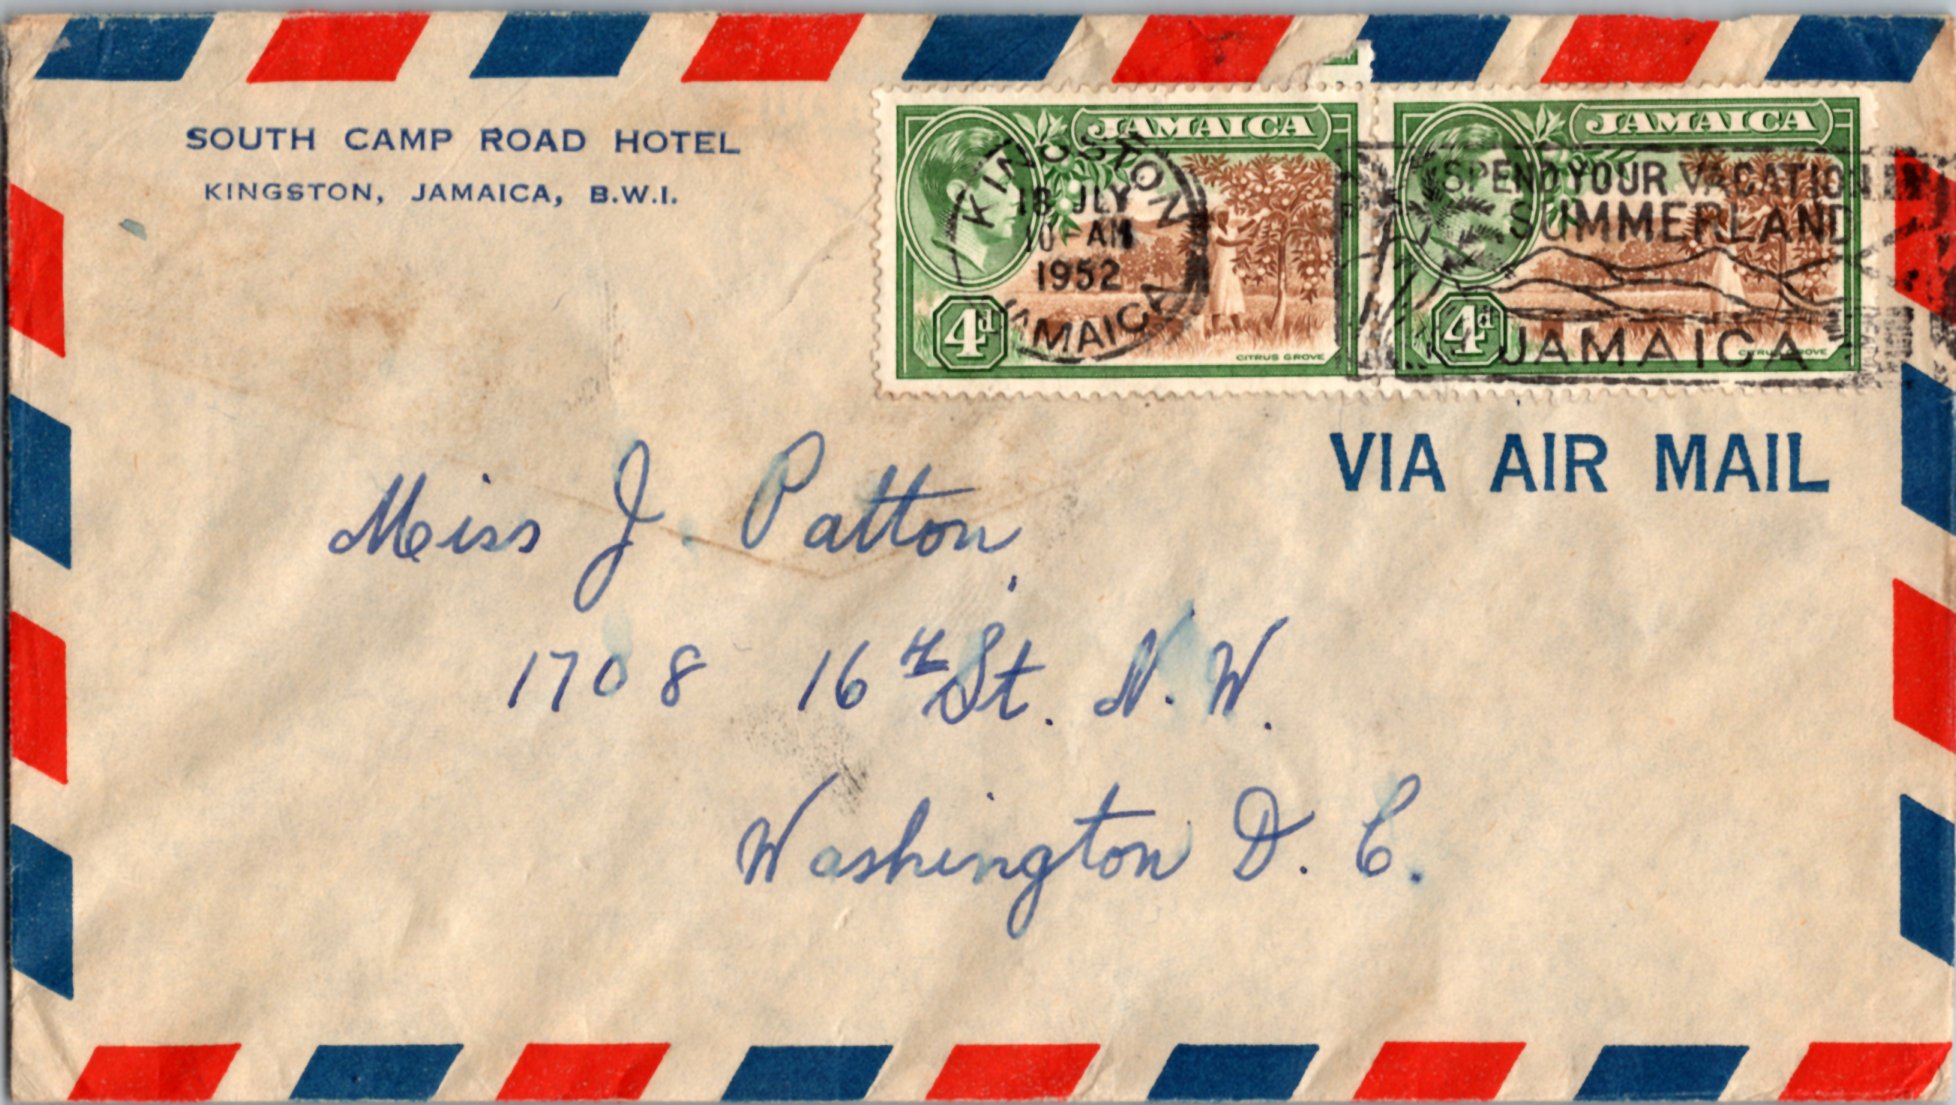 SOUTH CAMP ROAD HOTEL
KINGSTON, JAMAICA, B.W.I.
JAMAICA
4d
CITRUS GROVE
JAMAICA
4d
CITRUS GROVE
KINGSTON
18 JLY
10 - AM
1952
JAMAICA
SPEND YOUR VACATION IN
SUMMERLAND
JAMAICA
VIA AIR MAIL
Miss J. Patton,
1708 16th St. N.W.
Washington D.C.